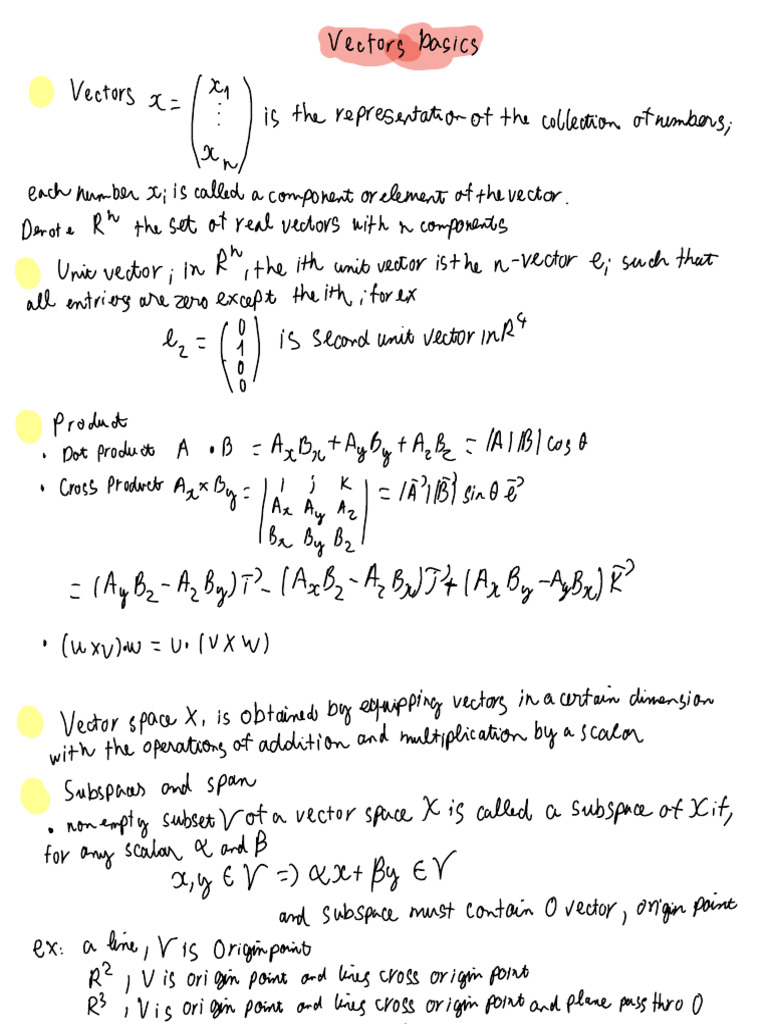 Vectors basics
Vectors x = (x1 ⋮ xn) is the representation of the collection of numbers;
each number xi is called a component or element of the vector.
Denote R^n the set of real vectors with n components
Unit vector; in R^n, the ith unit vector is the n-vector ei such that
all entries are zero except the ith, for ex
e2 = (0 1 0 0) is second unit vector in R^4
Product
• Dot product A • B = AxBx + AyBy + AzBz = |A||B| cos θ
• Cross Product Ax × By = |i j k; Ax Ay Az; Bx By Bz| = |A⃗||B⃗| sin θ e⃗
= (AyBz - AzBy) i⃗ - (AxBz - AzBx) j⃗ + (AxBy - AyBx) k⃗
• (u×v)•w = u•(v×w)
Vector space X, is obtained by equipping vectors in a certain dimension
with the operations of addition and multiplication by a scalar
Subspaces and span
• nonempty subset V of a vector space X is called a subspace of X if,
for any scalar α and β
x, y ∈ V => αx + βy ∈ V
and subspace must contain 0 vector, origin point
ex: a line, V is origin point
R^2, V is origin point and lines cross origin point
R^3, V is origin point and lines cross origin point and plane pass thro 0